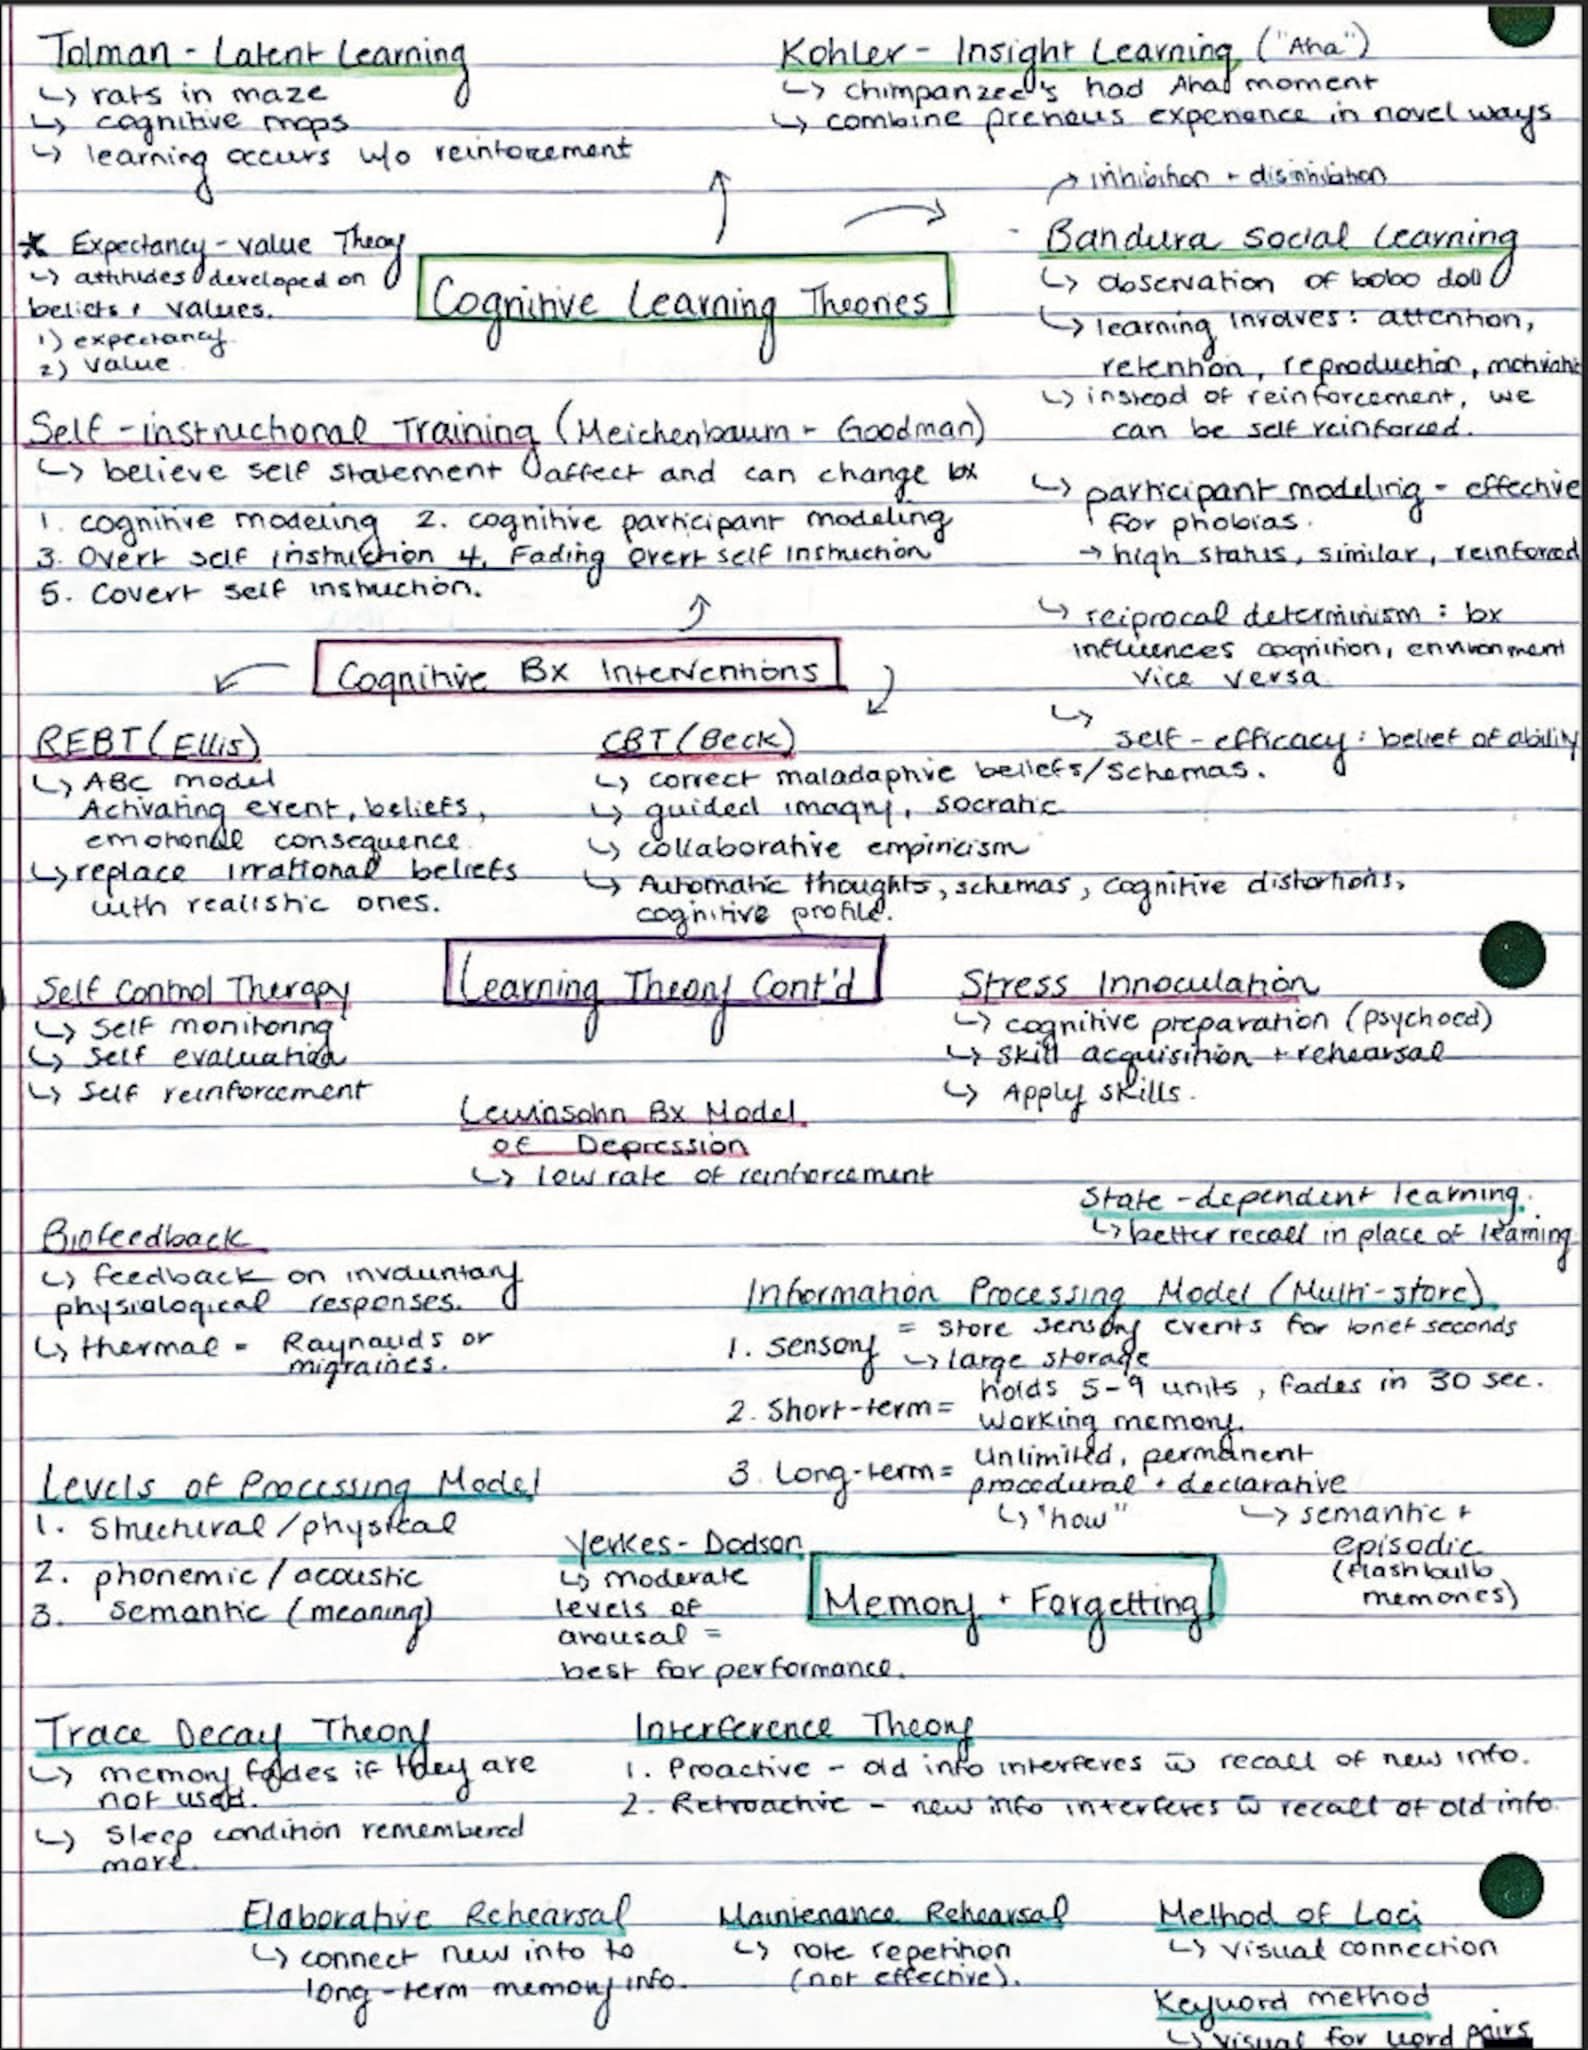 Tolman - Latent Learning
↳ rats in maze
↳ cognitive maps
↳ learning occurs w/o reinforcement
Kohler - Insight Learning ("Aha")
↳ chimpanzee's had Aha moment
↳ combine previous experience in novel ways
* Expectancy-value Theory
↳ attitudes developed on
beliefs + values.
1) expectancy
2) value.
Cognitive Learning Theories
↗ inhibition + disinhibition
Bandura Social Learning
↳ observation of bobo doll
↳ learning involves: attention,
retention, reproduction,
↳ instead of reinforcement, we
can be self reinforced.
↳ participant modeling - effective
for phobias.
→ high status, similar, reinforced
↳ reciprocal determinism: bx
influences cognition, environment
vice versa
↳
self-efficacy: belief of ability
Self-instructional Training (Meichenbaum + Goodman)
↳ believe self statement affect and can change bx
1. cognitive modeling 2. cognitive participant modeling
3. Overt self instruction 4. Fading overt self instruction
5. Covert self instruction.
Cognitive Bx Interventions
REBT (Ellis)
↳ ABC model
Activating event, beliefs,
emotional consequence
↳ replace irrational beliefs
with realistic ones.
CBT (Beck)
↳ correct maladaptive beliefs/schemas.
↳ guided imagry, socratic
↳ collaborative empiricism
↳ Automatic thoughts, schemas, cognitive distortions,
cognitive profile.
Learning Theory Cont'd
Self Control Therapy
↳ Self monitoring
↳ Self evaluation
↳ Self reinforcement
Stress Innoculation
↳ cognitive preparation (psychoed)
↳ skill acquisition + rehearsal
↳ Apply skills.
Lewinsohn Bx Model
of Depression
↳ low rate of reinforcement
Biofeedback
↳ feedback on involuntary
physiological responses.
↳ thermal = Raynauds or
migraines.
State-dependent learning.
↳ better recall in place of learning
Information Processing Model (Multi-store)
1. Sensory = store sensory events for brief seconds
↳ large storage
2. Short-term = holds 5-9 units, fades in 30 sec.
working memory.
3. Long-term = Unlimited, permanent
procedural + declarative
↳ "how" ↳ semantic +
episodic
(flashbulb
memories)
Levels of Processing Model
1. Structural/physical
2. phonemic/acoustic
3. Semantic (meaning)
Yerkes-Dodson
↳ moderate
levels of
arousal =
best for performance.
Memory + Forgetting
Trace Decay Theory
↳ memory fades if they are
not used.
↳ Sleep condition remembered
more.
Interference Theory
1. Proactive - old info interferes w̄ recall of new info.
2. Retroactive - new info interferes w̄ recall of old info.
Elaborative Rehearsal
↳ connect new info to
long-term memory info.
Maintenance Rehearsal
↳ rote repetition
(not effective).
Method of Loci
↳ visual connection
Keyword method
↳ visual for word pairs